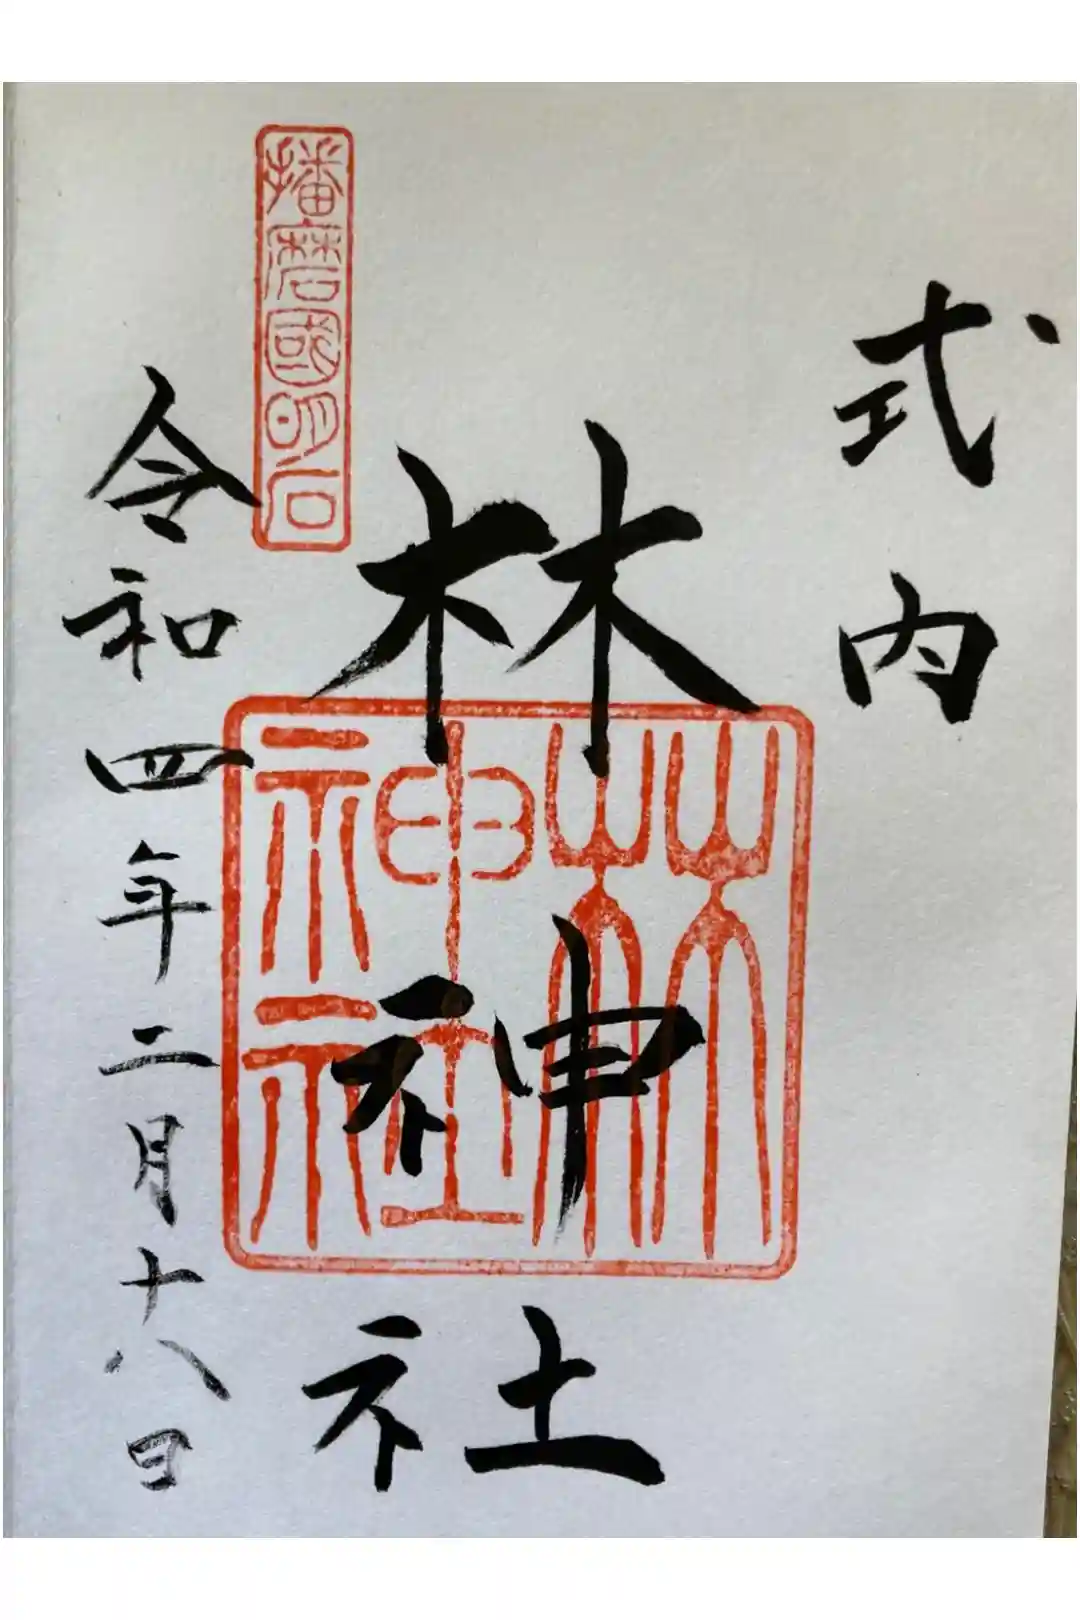 式内
林神社
林神社
播磨國明石
令和四年二月十八日